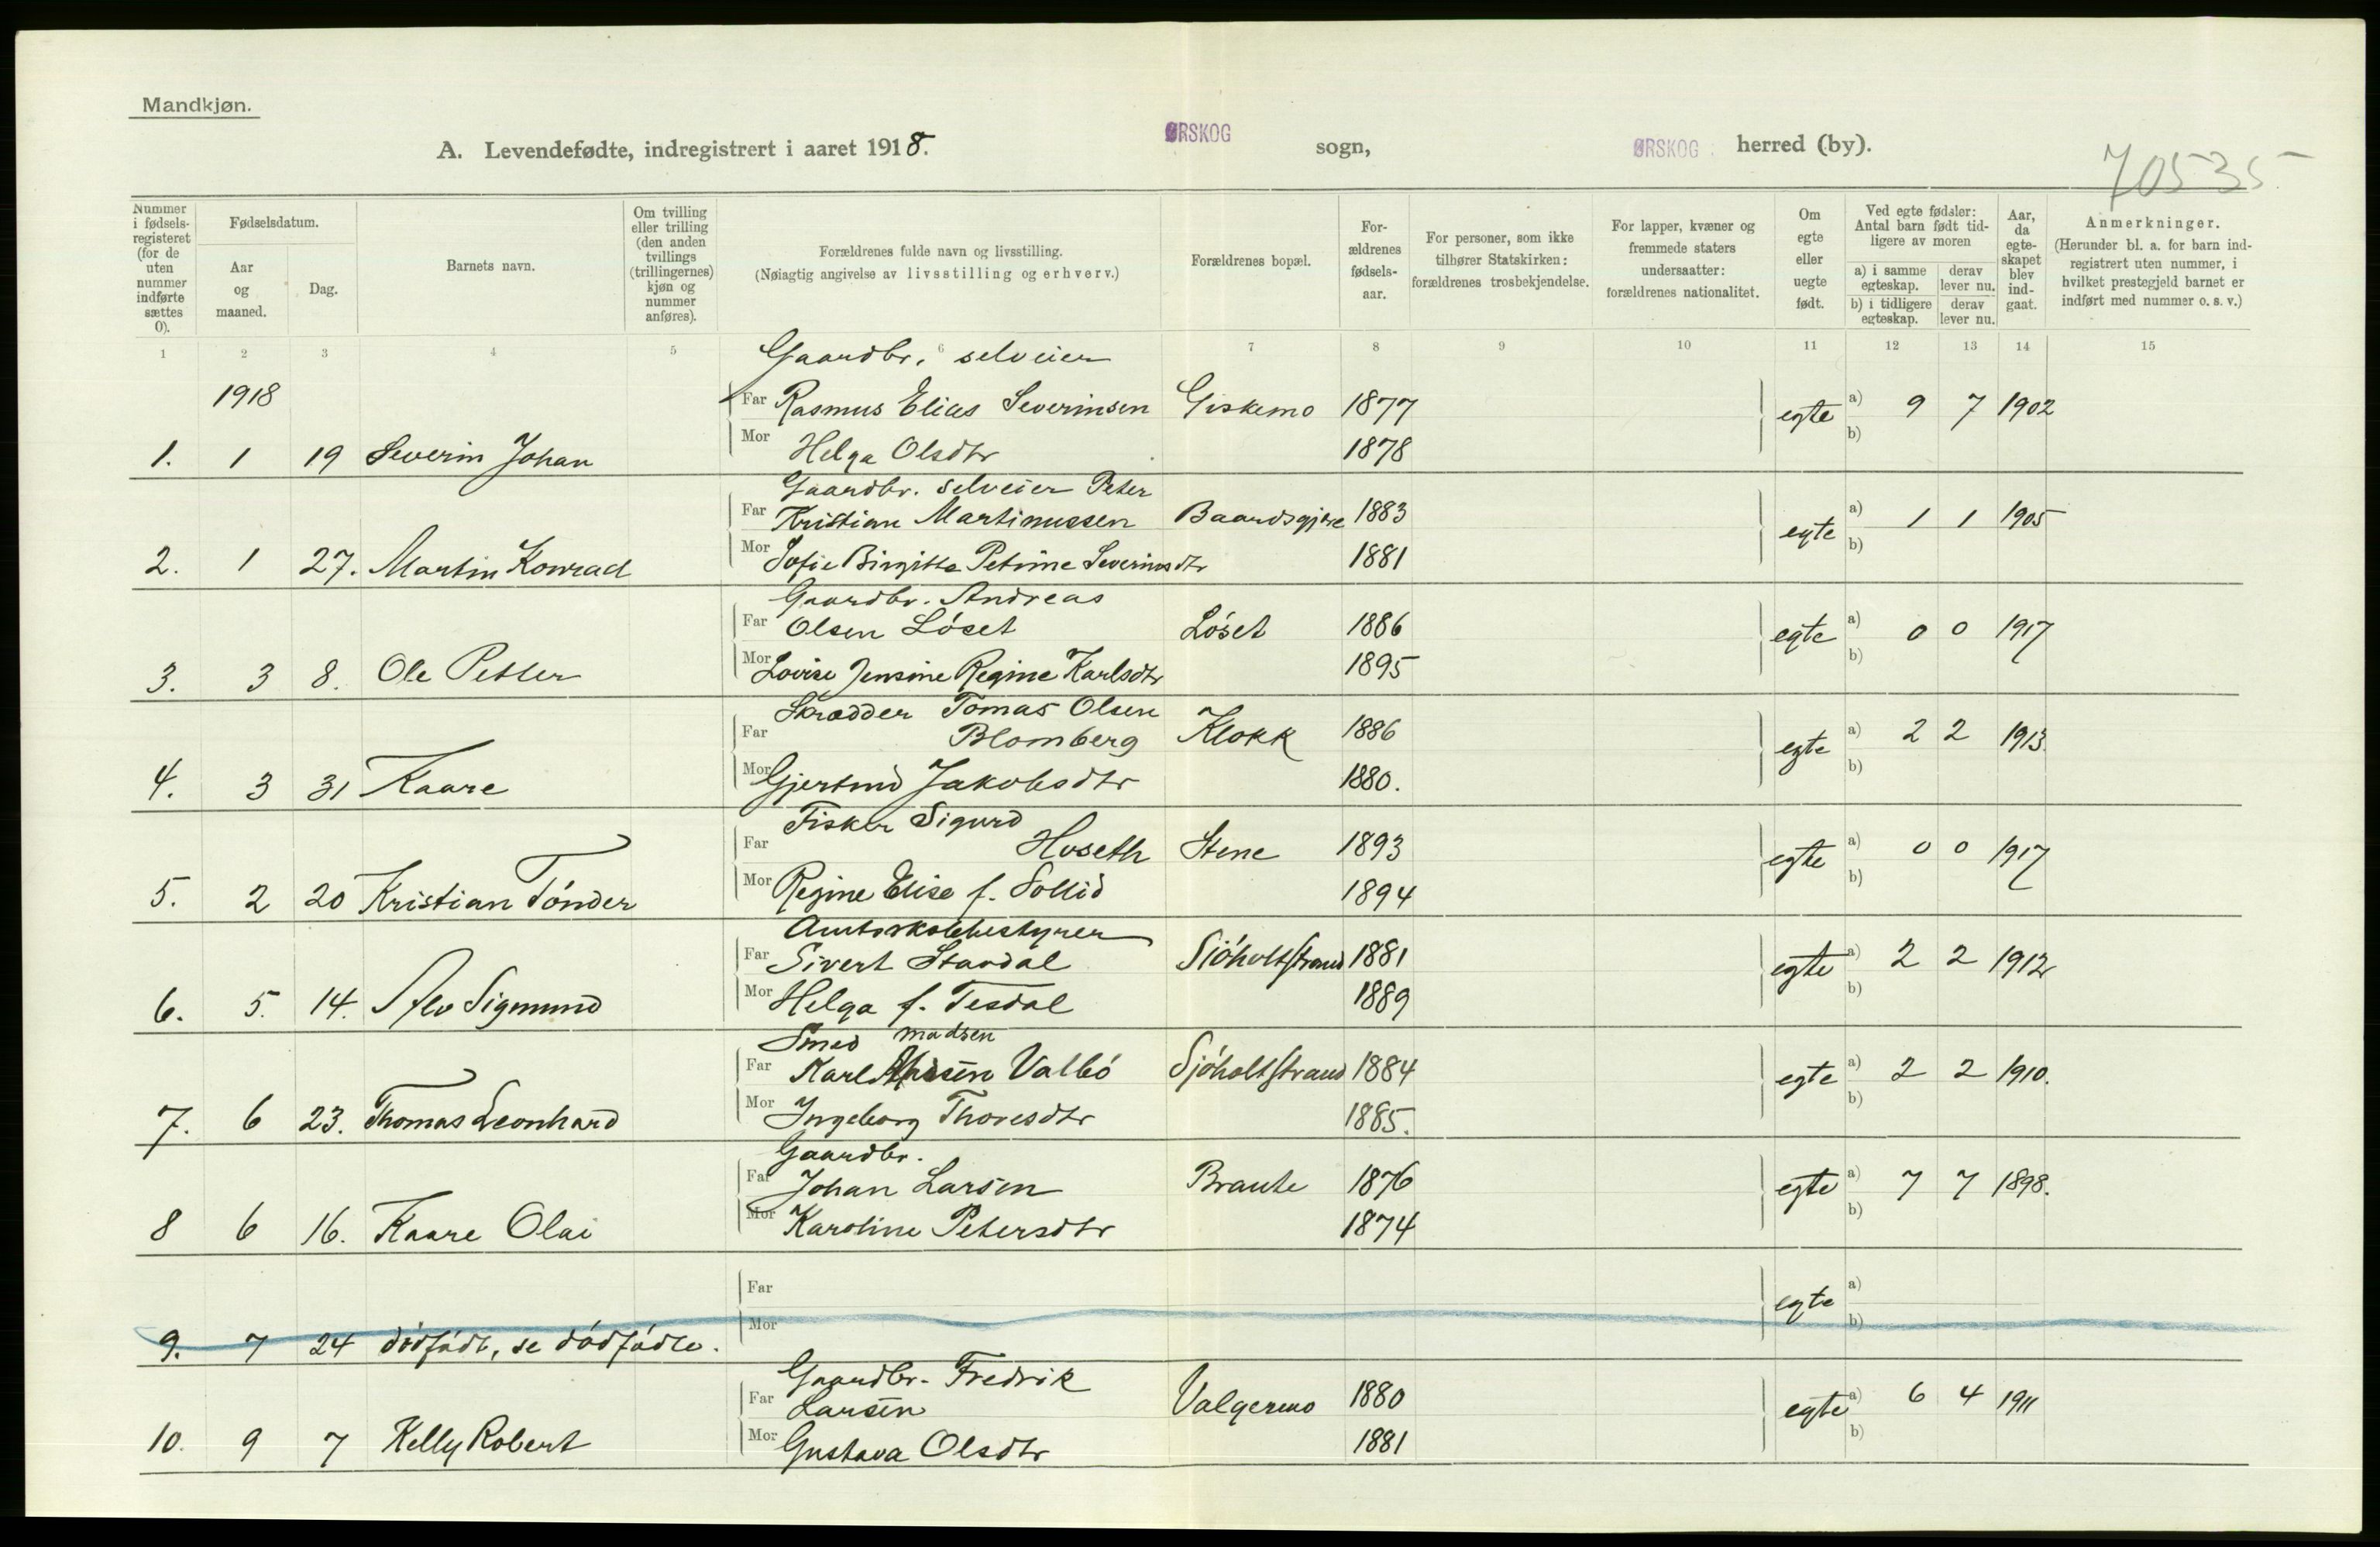 Mandkjøn.
A. Levendefødte, indregistrert i aaret 1918.
ØRSKOG sogn, ØRSKOG herred (by).
70535
Nummer i fødsels-registeret (for de uten nummer indførte sættes 0).
Fødselsdatum.
Aar og maaned.
Dag.
Barnets navn.
Om tvilling eller trilling (den anden tvillings (trillingernes) kjøn og nummer anføres).
Forældrenes fulde navn og livsstilling.
(Nøiagtig angivelse av livsstilling og erhverv.)
Forældrenes bopæl.
For-ældrenes fødsels-aar.
For personer, som ikke tilhører Statskirken: forældrenes trosbekjendelse.
For lapper, kvæner og fremmede staters undersaatter: forældrenes nationalitet.
Om egte eller uegte født.
Ved egte fødsler: Antal barn født tid-ligere av moren
a) i samme egteskap. derav lever nu.
b) i tidligere egteskap. derav lever nu.
Aar, da egte-skapet blev ind-gaat.
Anmerkninger.
(Herunder bl. a. for barn ind-registrert uten nummer, i hvilket prestegjeld barnet er indført med nummer o. s. v.)
1 2 3 4 5 6 7 8 9 10 11 12 13 14 15
Gaardbr. selveier
1918 Far Rasmus Elias Severinsen Giskemo 1877 egte a) 9 7 1902
1. 1 19 Severin Johan Mor Helga Olsdtr 1878 b)
Gaardbr. selveier Peter
Far Kristian Martinussen Baardsgjære 1883 egte a) 1 1 1905
2. 1 27. Martin Konrad Mor Sofie Birgitte Petrine Severinsdtr 1881 b)
Gaardbr. Andreas
Far Olsen Löset Löset 1886 egte a) 0 0 1917
3. 3 8. Ole Petter Mor Lovise Jensine Regine Karlsdtr 1895 b)
Skrædder Tomas Olsen
Far Blomberg Klokk 1886 egte a) 2 2 1913
4. 3 31 Kaare Mor Gjertrud Jakobsdtr 1880. b)
Fisker Sigurd
Far Hoseth Stene 1893 egte a) 0 0 1917
5. 2 20 Kristian Tönder Mor Regine Elise f. Sollid 1894 b)
Amtsskolebestyrer
Far Sivert Stavdal Sjöholtstrand 1881 egte a) 2 2 1912
6. 5. 14. Alv Sigmund Mor Helga f. Tesdal 1889 b)
Smed Madsen
Far Karl Valbö Sjöholtstrand 1884 egte a) 2 2 1910.
7. 6 23. Thomas Leonhard Mor Ingeborg Thoresdtr 1885. b)
Gaardbr.
Far Johan Larsen Braute 1876 egte a) 7 7 1898.
8 6 16. Kaare Olai Mor Karoline Petersdtr 1874 b)
Far egte a)
9. 7 24 dödfödt, se dödfödte. Mor b)
Gaardbr. Fredrik
Far Larsen Valgermo 1880 egte a) 6 4 1911
10. 9 7 Kelly Robert Mor Gustava Olsdtr 1881 b)